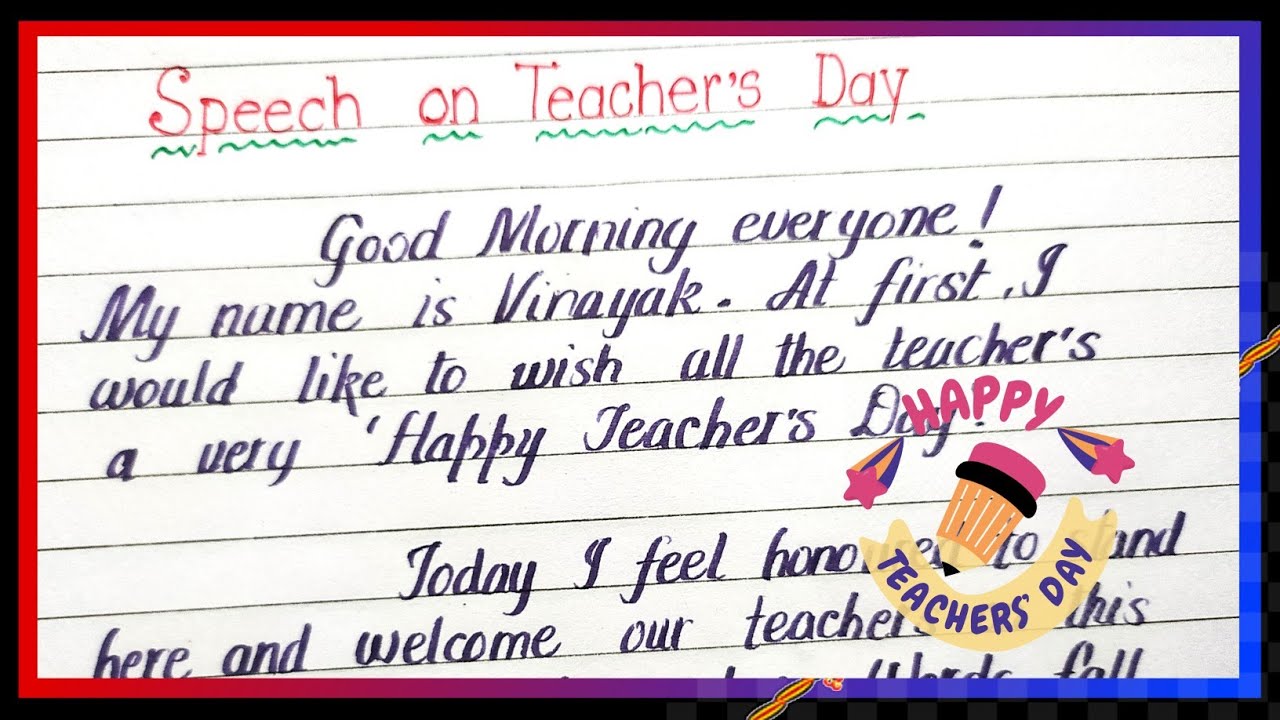 Speech on Teacher's Day
Good Morning everyone!
My name is Vinayak. At first, I
would like to wish all the teacher's
a very 'Happy Teacher's Day!
HAPPY
TEACHERS' DAY
Today I feel honoured to stand
here and welcome our teachers this
Words fall